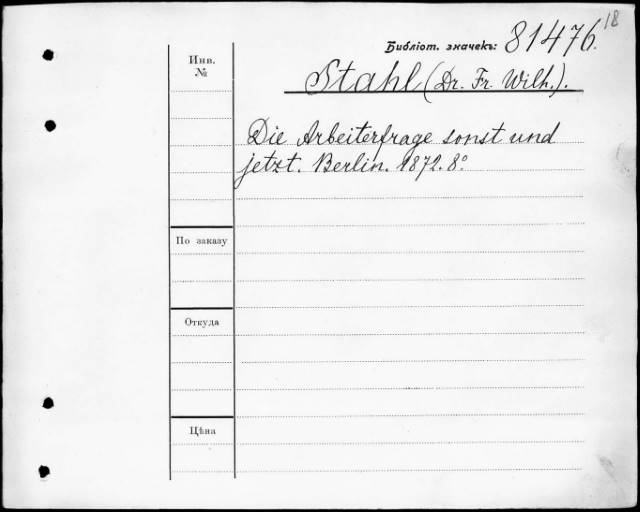 18
Библіот. значекъ: 81476.
Инв.
№
Stahl (Dr. Fr. Wilh.).
Die Arbeiterfrage sonst und
jetzt. Berlin. 1872. 8º
По заказу
Откуда
Цѣна